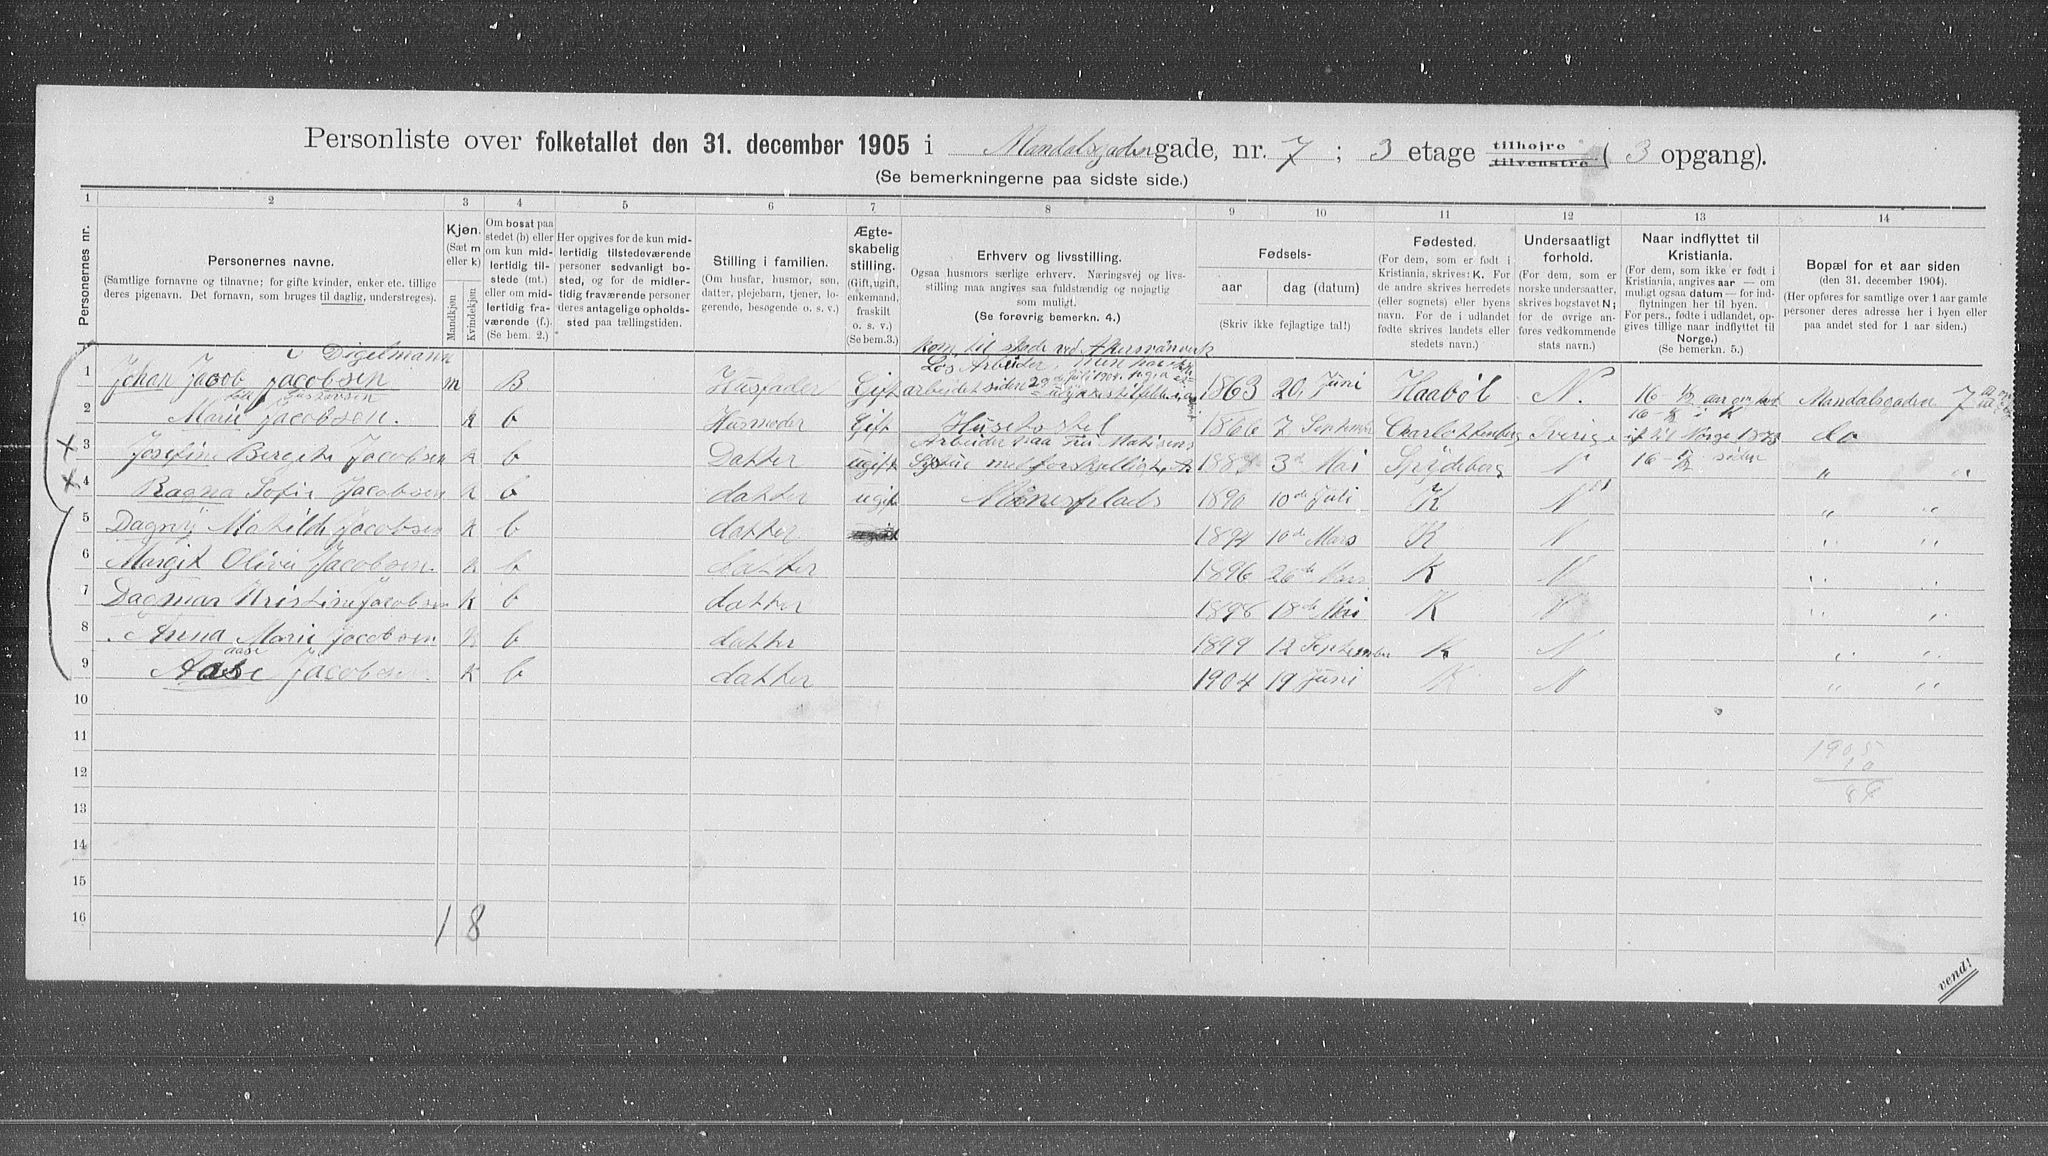 Personliste over folketallet den 31. december 1905 i Mandalsgaden gade, nr. 7 ; 3 etage tilhøjre tilvenstre ( 3 opgang).
(Se bemerkningerne paa sidste side.)
1 2 3 4 5 6 7 8 9 10 11 12 13 14
Personernes nr.
Personernes navne.
(Samtlige fornavne og tilnavne; for gifte kvinder, enker etc. tillige
deres pigenavn. Det fornavn, som bruges til daglig, understreges).
Kjøn.
(Sæt m
eller k)
Mandkjøn
Kvindekjøn
Om bosat paa
stedet (b) eller
om kun mid-
lertidig til-
stede (mt.)
eller om mid-
lertidig fra-
værende (f.).
(Se bem. 2.)
Her opgives for de kun mid-
lertidig tilstedeværende
personer sedvanligt bo-
sted, og for de midler-
tidig fraværende personer
deres antagelige opholds-
sted paa tællingstiden.
Stilling i familien.
(Om husfar, husmor, søn,
datter, plejebarn, tjener, lo-
gerende, besøgende o. s. v.)
Ægte-
skabelig
stilling.
(Gift, ugift,
enkemand,
fraskilt
o. s. v.)
(Se bem.3.)
Erhverv og livsstilling.
Ogsaa husmors særlige erhverv. Næringsvej og livs-
stilling maa angives saa fuldstændig og nøjagtig
som muligt.
(Se forøvrig bemerkn. 4.)
Fødsels-
aar dag (datum)
(Skriv ikke fejlagtige tal!)
Fødested.
(For dem, som er født i
Kristiania, skrives: K. For
de andre skrives herredets
(eller sognets) eller byens
navn. For de i udlandet
fødte skrives landets eller
stedets navn.)
Undersaatligt
forhold.
(For dem, som er
norske undersaatter,
skrives bogstavet N;
for de øvrige an-
føres vedkommende
stats navn.)
Naar indflyttet til
Kristiania.
(For dem, som ikke er født i
Kristiania, angives aar — om
muligt ogsaa datum — for ind-
flytningen her til byen.
For pers., fødte i udlandet, op-
gives tillige naar indflyttet til
Norge.)
(Se bemerkn. 5.)
Bopæl for et aar siden
(den 31. december 1904).
(Her opføres for samtlige over 1 aar gamle
personer deres adresse her i byen eller
paa andet sted for 1 aar siden.)
Digelmann kom til skade ved Akers
1 Johan Jacob Jacobsen m B Husfader Gift Løs Arbeider, arbeidet siden 29de Juli 1904 1863 20 Juni Haabøl N. 16 Mandalsgaden 7
2 Marie Jacobsen. k b Husmoder Gift 1866 7 September Charlottenberg Sverige Norge 1873 do
3 Josefine Bergite Jacobsen k b Datter ugift Arbeider Systue med forskelligt 3de Mai Spydeberg N 16 siden " "
4 Ragna Sofie Jacobsen k b datter ugift 1890 10de Juli K N " "
5 Dagny Mathilde Jacobsen k b datter 1894 10de Mars K N " "
6 Margit Olivie Jacobsen. k b datter 1896 26de K N " "
7 Dagmar Kristine Jacobsen K b datter 1898 18de Mai K N " "
8 Anna Marie Jacobsen k b datter 1899 12 September K N " "
aase
9 Aase Jacobsen. K b datter 1904 19 Juni K N " "
10
11
12
13
14
15
16
1905
10
1 8
vend!